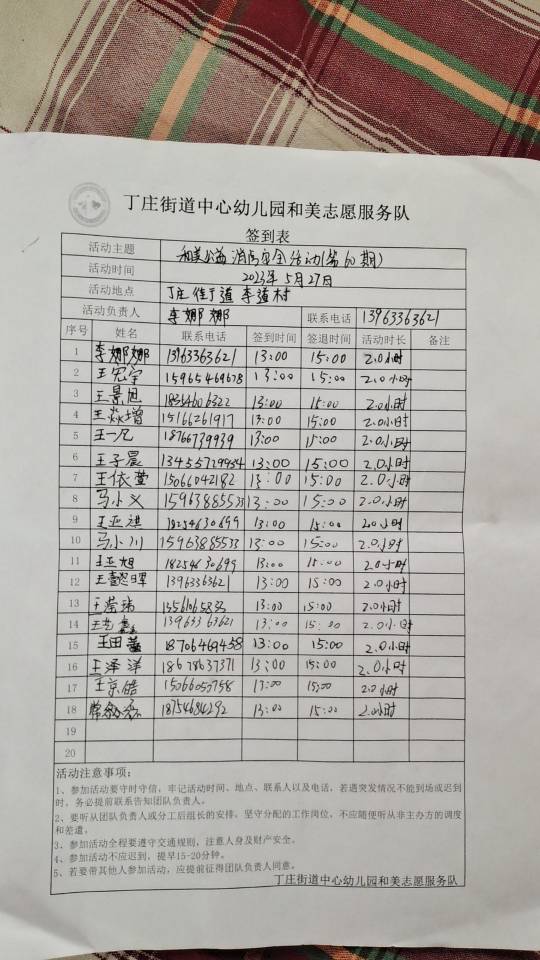 丁庄街道中心幼儿园和美志愿服务队
签到表
活动主题 和美公益 消防安全活动(第60期)
活动时间 2023年5月27日
活动地点 丁庄街道李道村
活动负责人 李娜娜 联系电话 13963363621
序号 姓名 联系电话 签到时间 签退时间 活动时长 备注
1 李娜娜 13963363621 13:00 15:00 2.0小时
2 王宏宇 15965469678 13:00 15:00 2.0小时
3 王景旭 18354606322 13:00 15:00 2.0小时
4 王焱增 15166261917 13:00 15:00 2.0小时
5 王一凡 18766739939 13:00 15:00 2.0小时
6 王子晨 13455729954 13:00 15:00 2.0小时
7 王依萱 15066042182 13:00 15:00 2.0小时
8 马小义 15963885533 13:00 15:00 2.0小时
9 王亚淇 18254630699 13:00 15:00 2.0小时
10 马小川 15963885533 13:00 15:00 2.0小时
11 王亚旭 18254630699 13:00 15:00 2.0小时
12 王 13963363621 13:00 15:00 2.0小时
13 王 13:00 15:00 2.0小时
14 王 13963363621 13:00 15:00 2.0小时
15 王田 18706469458 13:00 15:00 2.0小时
16 王泽洋 18678637371 13:00 15:00 2.0小时
17 王京皓 15066050758 13:00 15:00 2.0小时
18 18754684292 13:00 15:00 2.0小时
19
20
活动注意事项：
1、参加活动要守时守信，牢记活动时间、地点、联系人以及电话，若遇突发情况不能到场或迟到
时，务必提前联系告知团队负责人。
2、要听从团队负责人或分工后组长的安排，坚守分配的工作岗位，不应随便听从非主办方的调度
和差遣。
3、参加活动全程要遵守交通规则，注意人身及财产安全。
4、参加活动不应迟到，提早15-20分钟。
5、若要带其他人参加活动，应提前征得团队负责人同意。
丁庄街道中心幼儿园和美志愿服务队